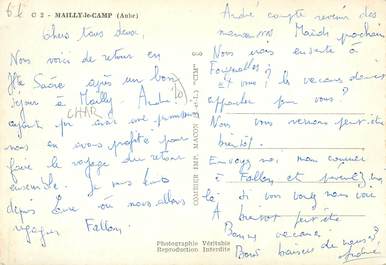 C 2 - MAILLY-le-CAMP (Aube)
Chers tous deux,
Nous voici de retour en
Hte Saône après un bon
séjour à Mailly André
CHAR
ayant pu avoir une permission
nous en avons profité pour
faire le voyage du retour
ensemble. Je
depuis où nous allons
Fallon.
COMBIER IMP. MACON (S.-&-L.) "CIM"
Photographie Véritable
Reproduction Interdite
André compte revenir des
manœuvres Mardi prochain
Nous irons ensuite à
Fougerolles
Et vous ? les vacances doivent
approcher pour vous ?
Nous vous verrons peut être
bientôt.
Envoyez moi mon courrier
à Fallon et prévenez
là si vous voulez nous voir
A bientôt peut être
Bonnes vacances
Bons baisers de nous 2